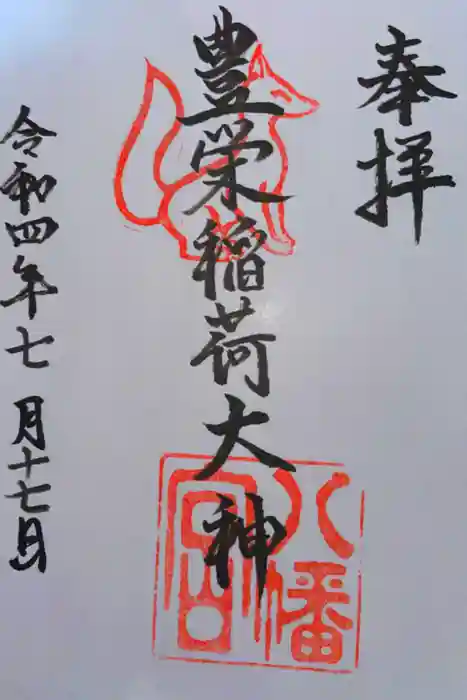 奉拝
豊栄稲荷大神
八幡宮
令和四年七月十七日